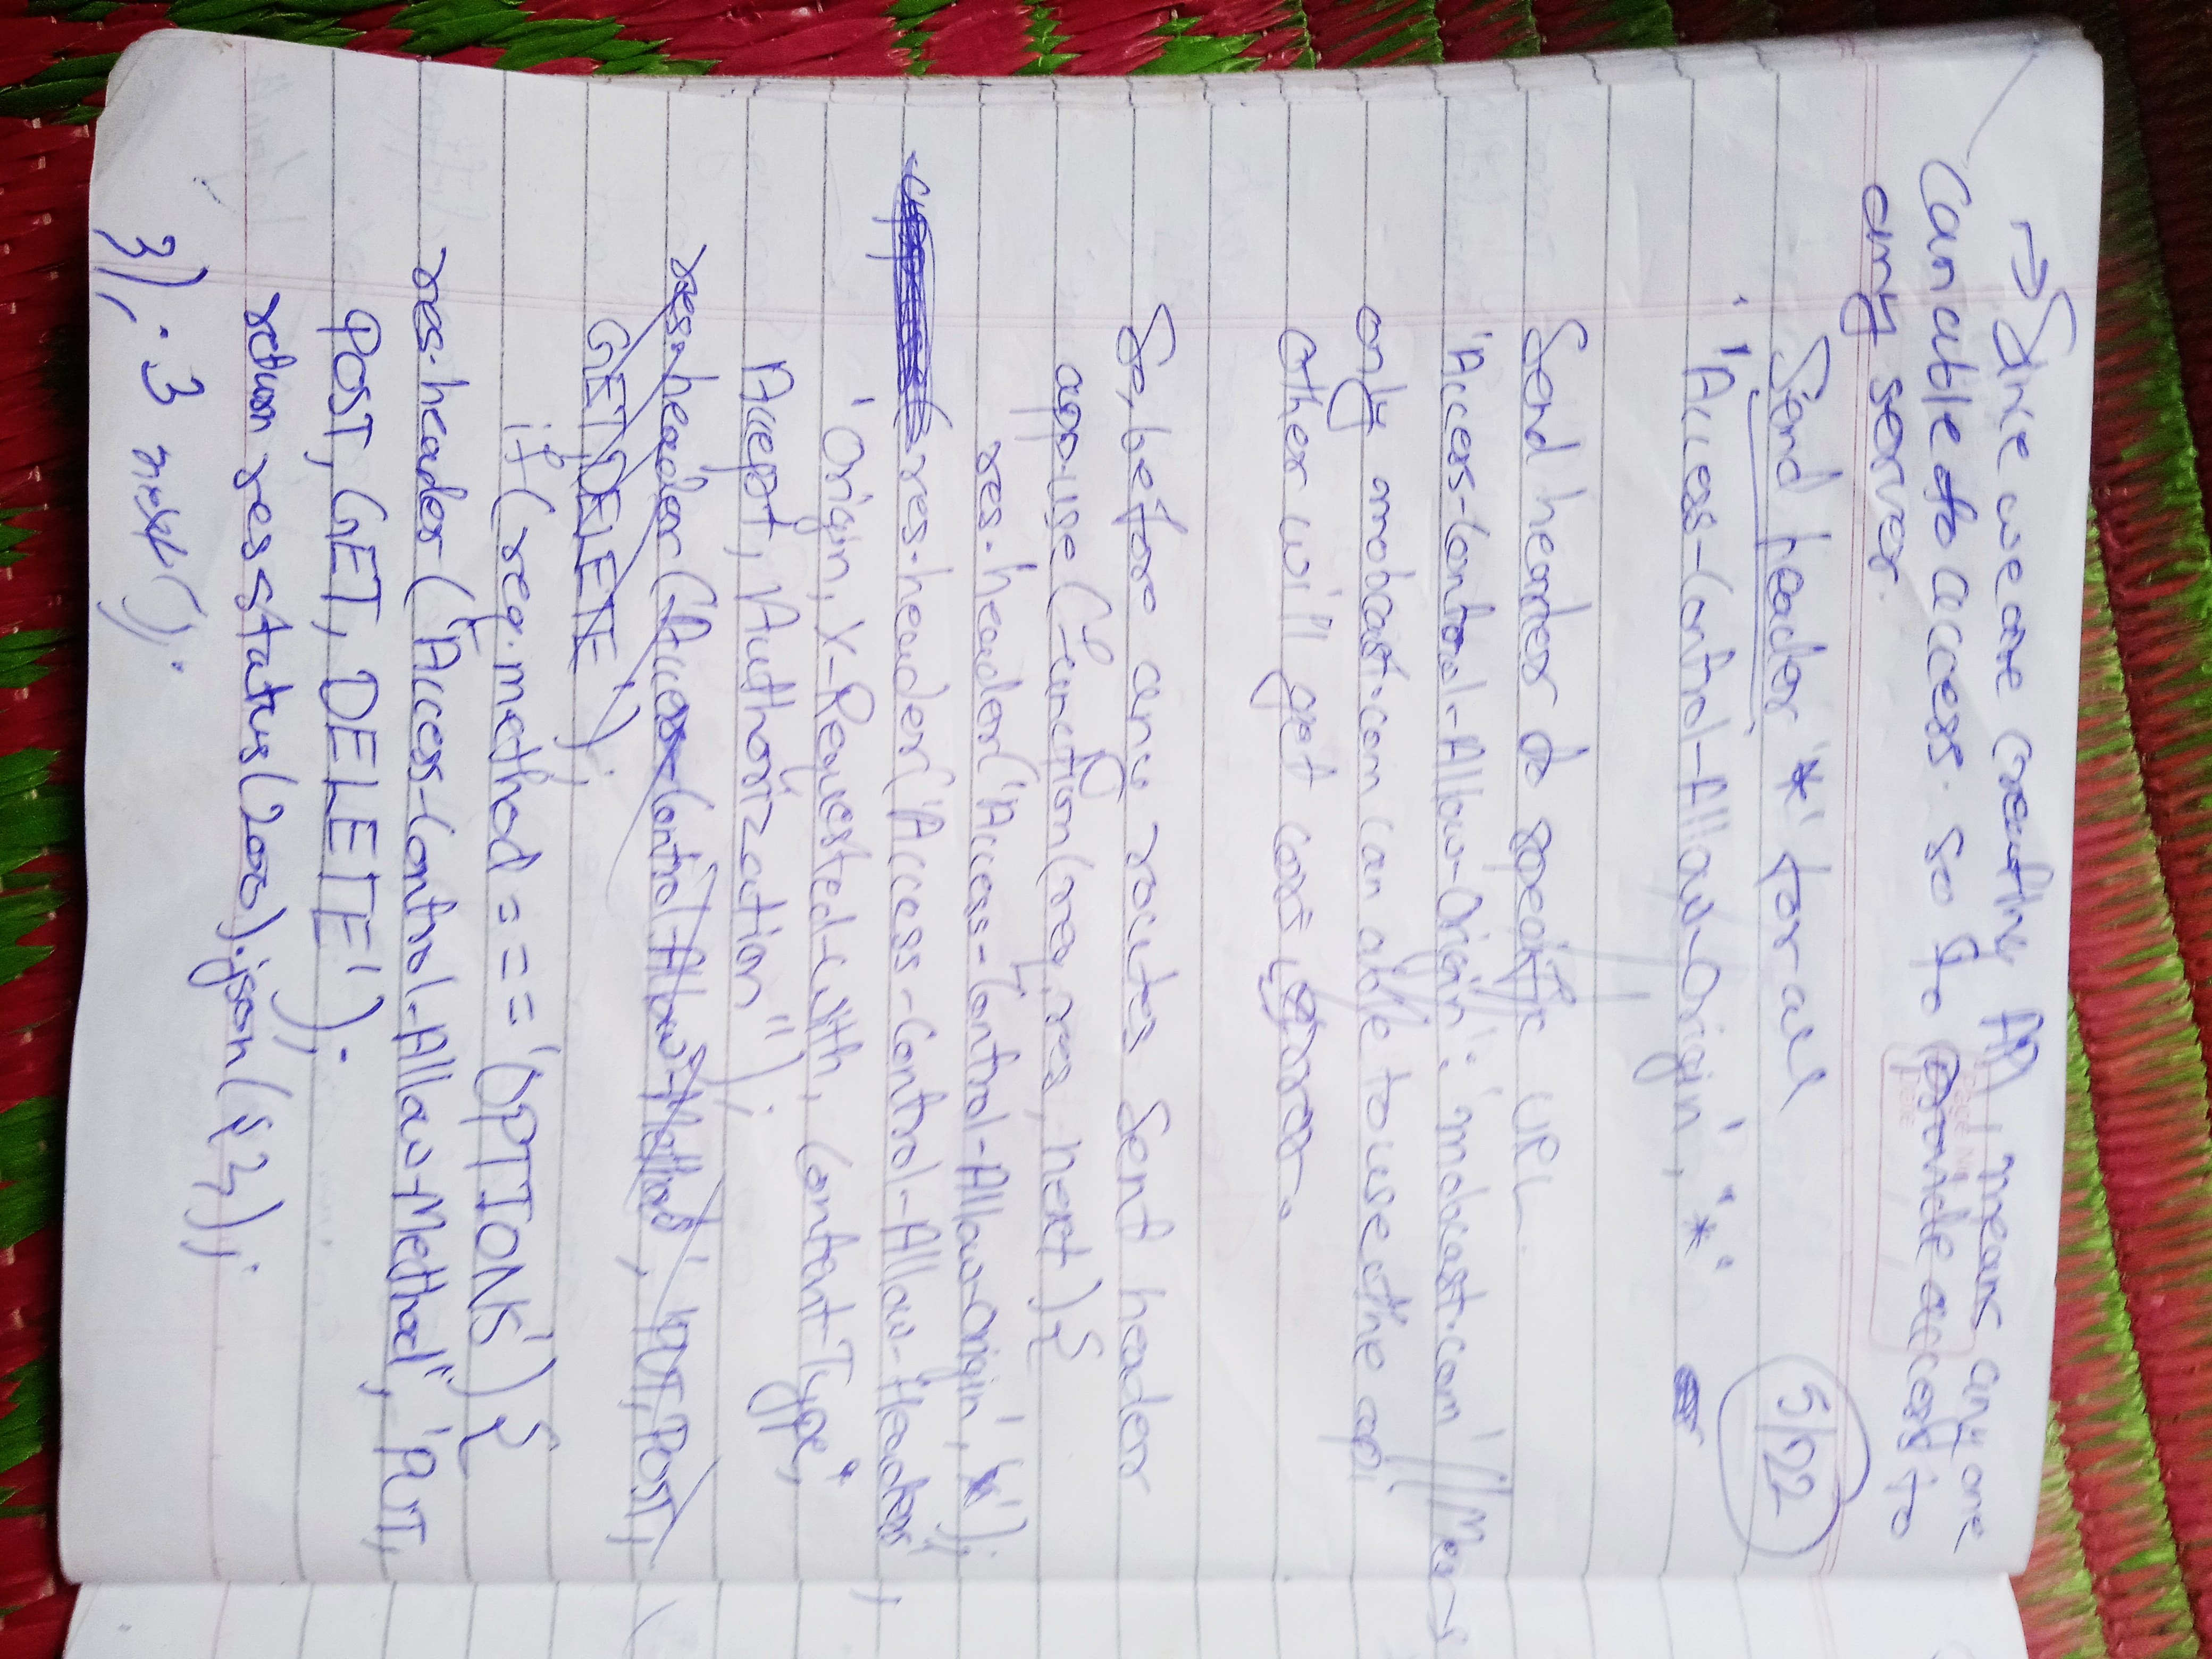 → Since we are creating API, means any one
can able to access. so to provide access to
any server.
Page No
Date
Send header '*' for all
5/22
'Access-Control-Allow-Origin', '*'
Send header to specific URL.
'Access-Control-Allow-Origin': 'mobcast.com' // Means
only mobcast.com can able to use the api
other will get cors error.
So, before any routes sent header
app.use(function(req, res, next){
res.header('Access-Control-Allow-Origin', '*');
res.header('Access-Control-Allow-Headers',
'Origin, X-Requested-With, Content-Type,
Accept, Authorization");
res.header('Access-Control-Allow-Method', 'PUT, POST,
GET, DELETE');
if(req.method === 'OPTIONS') {
res.header('Access-Control-Allow-Method', 'PUT,
POST, GET, DELETE');
return res.status(200).json({});
}); } next();